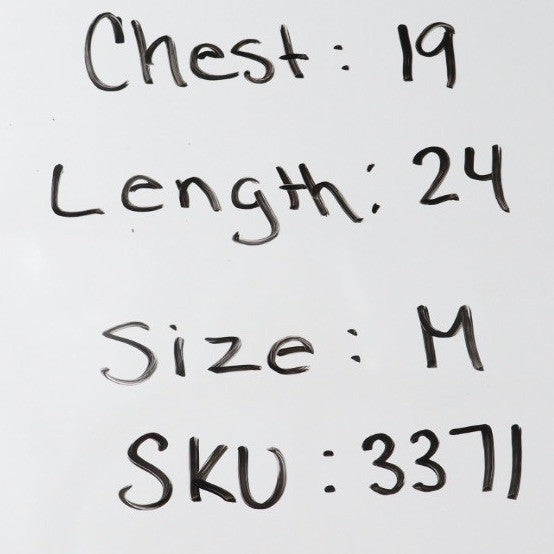 Chest: 19
Length: 24
Size: M
SKU: 3371